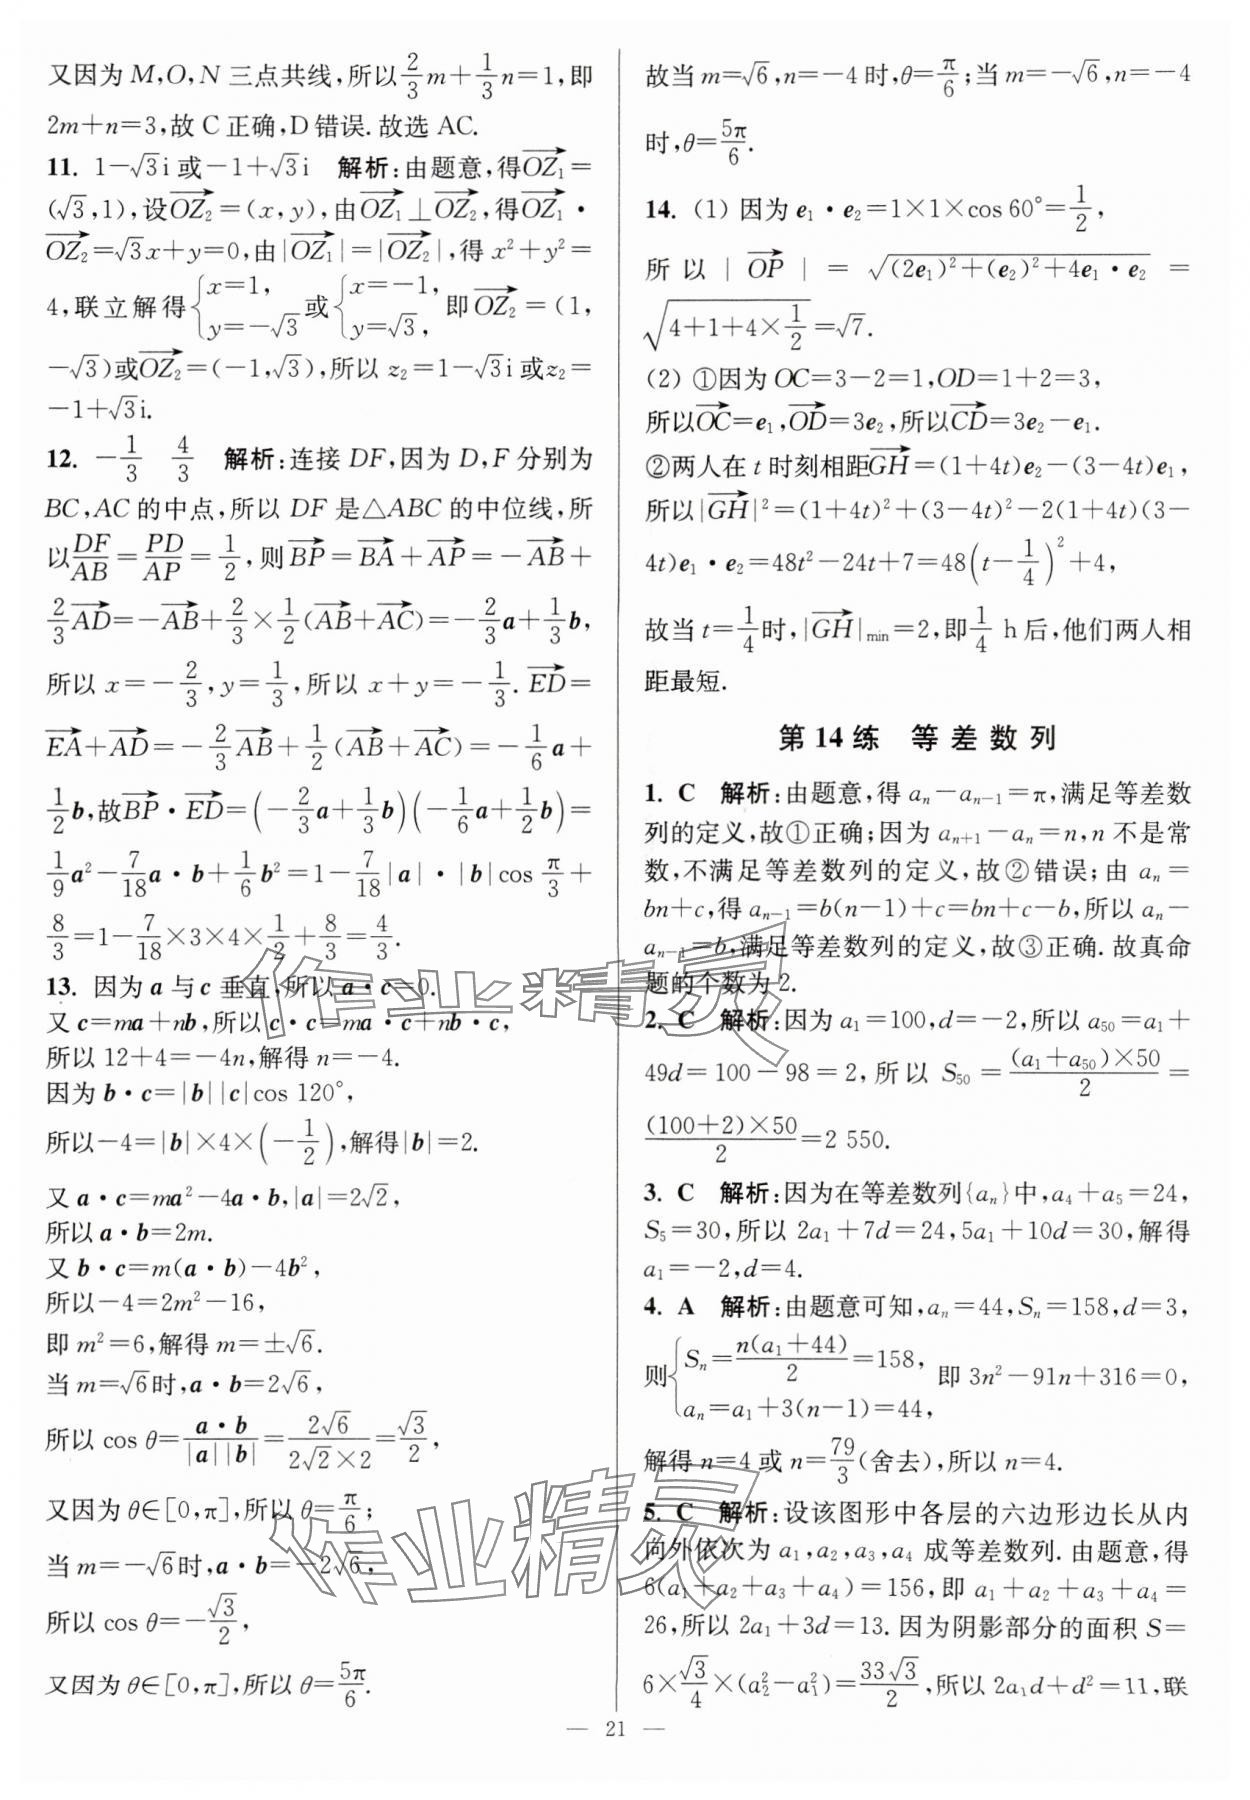 又因为 M,O,N 三点共线,所以$\frac{2}{3}$m+$\frac{1}{3}$n=1,即
2m+n=3,故 C 正确,D 错误.故选 AC.
11. 1-√3i 或-1+√3i 解析:由题意,得$\overrightarrow{OZ_1}$=
(√3,1),设$\overrightarrow{OZ_2}$=(x,y),由$\overrightarrow{OZ_1}$⊥$\overrightarrow{OZ_2}$,得$\overrightarrow{OZ_1}$·
$\overrightarrow{OZ_2}$=√3x+y=0,由|$\overrightarrow{OZ_1}$|=|$\overrightarrow{OZ_2}$|,得 x²+y²=
4,联立解得$\begin{cases}x=1,\\y=-\sqrt{3}\end{cases}$或$\begin{cases}x=-1,\\y=\sqrt{3},\end{cases}$即$\overrightarrow{OZ_2}$=(1,
-√3)或$\overrightarrow{OZ_2}$=(-1,√3),所以 z₂=1-√3i 或z₂=
-1+√3i.
12. -$\frac{1}{3}$ $\frac{4}{3}$ 解析:连接 DF,因为 D,F 分别为
BC,AC 的中点,所以 DF 是△ABC 的中位线,所
以$\frac{DF}{AB}$=$\frac{PD}{AP}$=$\frac{1}{2}$,则$\overrightarrow{BP}$=$\overrightarrow{BA}$+$\overrightarrow{AP}$=-$\overrightarrow{AB}$+
$\frac{2}{3}$$\overrightarrow{AD}$=-$\overrightarrow{AB}$+$\frac{2}{3}$×$\frac{1}{2}$($\overrightarrow{AB}$+$\overrightarrow{AC}$)=-$\frac{2}{3}$a+$\frac{1}{3}$b,
所以 x=-$\frac{2}{3}$,y=$\frac{1}{3}$,所以 x+y=-$\frac{1}{3}$.$\overrightarrow{ED}$=
$\overrightarrow{EA}$+$\overrightarrow{AD}$=-$\frac{2}{3}$$\overrightarrow{AB}$+$\frac{1}{2}$($\overrightarrow{AB}$+$\overrightarrow{AC}$)=-$\frac{1}{6}$a+
$\frac{1}{2}$b,故$\overrightarrow{BP}$·$\overrightarrow{ED}$=(-$\frac{2}{3}$a+$\frac{1}{3}$b)(-$\frac{1}{6}$a+$\frac{1}{2}$b)=
$\frac{1}{9}$a²-$\frac{7}{18}$a·b+$\frac{1}{6}$b²=1-$\frac{7}{18}$|a|·|b|cos$\frac{π}{3}$+
$\frac{8}{3}$=1-$\frac{7}{18}$×3×4×$\frac{1}{2}$+$\frac{8}{3}$=$\frac{4}{3}$.
13. 因为 a 与 c 垂直,所以 a·c=0.
又 c=ma+nb,所以 c·c=ma·c+nb·c,
所以 12+4=-4n,解得 n=-4.
因为 b·c=|b||c|cos 120°,
所以-4=|b|×4×(-$\frac{1}{2}$),解得|b|=2.
又 a·c=ma²-4a·b,|a|=2√2,
所以 a·b=2m.
又 b·c=m(a·b)-4b²,
所以-4=2m²-16,
即 m²=6,解得 m=±√6.
当 m=√6时,a·b=2√6,
所以 cos θ=$\frac{a·b}{|a||b|}$=$\frac{2\sqrt{6}}{2\sqrt{2}×2}$=$\frac{\sqrt{3}}{2}$,
又因为 θ∈[0,π],所以 θ=$\frac{π}{6}$;
当 m=-√6时,a·b=-2√6,
所以 cos θ=-$\frac{\sqrt{3}}{2}$,
又因为 θ∈[0,π],所以 θ=$\frac{5π}{6}$.
故当 m=√6,n=-4 时,θ=$\frac{π}{6}$;当 m=-√6,n=-4
时,θ=$\frac{5π}{6}$.
14. (1) 因为 e₁·e₂=1×1×cos 60°=$\frac{1}{2}$,
所以 |$\overrightarrow{OP}$| = $\sqrt{(2e_1)^2+(e_2)^2+4e_1·e_2}$ =
$\sqrt{4+1+4×\frac{1}{2}}$=√7.
(2) ①因为 OC=3-2=1,OD=1+2=3,
所以$\overrightarrow{OC}$=e₁,$\overrightarrow{OD}$=3e₂,所以$\overrightarrow{CD}$=3e₂-e₁.
②两人在 t 时刻相距$\overrightarrow{GH}$=(1+4t)e₂-(3-4t)e₁,
所以|$\overrightarrow{GH}$|²=(1+4t)²+(3-4t)²-2(1+4t)(3-
4t)e₁·e₂=48t²-24t+7=48(t-$\frac{1}{4}$)²+4,
故当 t=$\frac{1}{4}$时,|$\overrightarrow{GH}$|$_{min}$=2,即$\frac{1}{4}$ h 后,他们两人相
距最短.
第 14 练 等差数列
1. C 解析:由题意,得 aₙ-aₙ₋₁=π,满足等差数
列的定义,故①正确;因为 aₙ₊₁-aₙ=n,n 不是常
数,不满足等差数列的定义,故②错误;由 aₙ=
bn+c,得 aₙ₋₁=b(n-1)+c=bn+c-b,所以 aₙ-
aₙ₋₁=b,满足等差数列的定义,故③正确.故真命
题的个数为 2.
2. C 解析:因为 a₁=100,d=-2,所以 a₅₀=a₁+
49d=100-98=2,所以 S₅₀=$\frac{(a_1+a_{50})×50}{2}$=
$\frac{(100+2)×50}{2}$=2 550.
3. C 解析:因为在等差数列{aₙ}中,a₄+a₅=24,
S₅=30,所以 2a₁+7d=24,5a₁+10d=30,解得
a₁=-2,d=4.
4. A 解析:由题意可知,aₙ=44,Sₙ=158,d=3,
则$\begin{cases}S_n=\frac{n(a_1+44)}{2}=158,\\a_n=a_1+3(n-1)=44,\end{cases}$即 3n²-91n+316=0,
解得 n=4 或 n=$\frac{79}{3}$(舍去),所以 n=4.
5. C 解析:设该图形中各层的六边形边长从内
向外依次为 a₁,a₂,a₃,a₄ 成等差数列.由题意,得
6(a₁+a₂+a₃+a₄)=156,即 a₁+a₂+a₃+a₄=
26,所以 2a₁+3d=13.因为阴影部分的面积 S=
6×$\frac{\sqrt{3}}{4}$×(a₂²-a₁²)=$\frac{33\sqrt{3}}{2}$,所以 2a₁d+d²=11,联
— 21 —
作业精灵
作业精灵